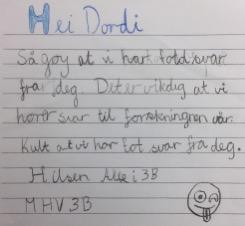 Hei Dordi
Så gøy at vi har fotd svar
fra deg. Det er vikdig at vi
hører svar til forskningren vår.
Kult at vi har fot svar fra deg.
Hilsen Alle i 3B
MHV 3B